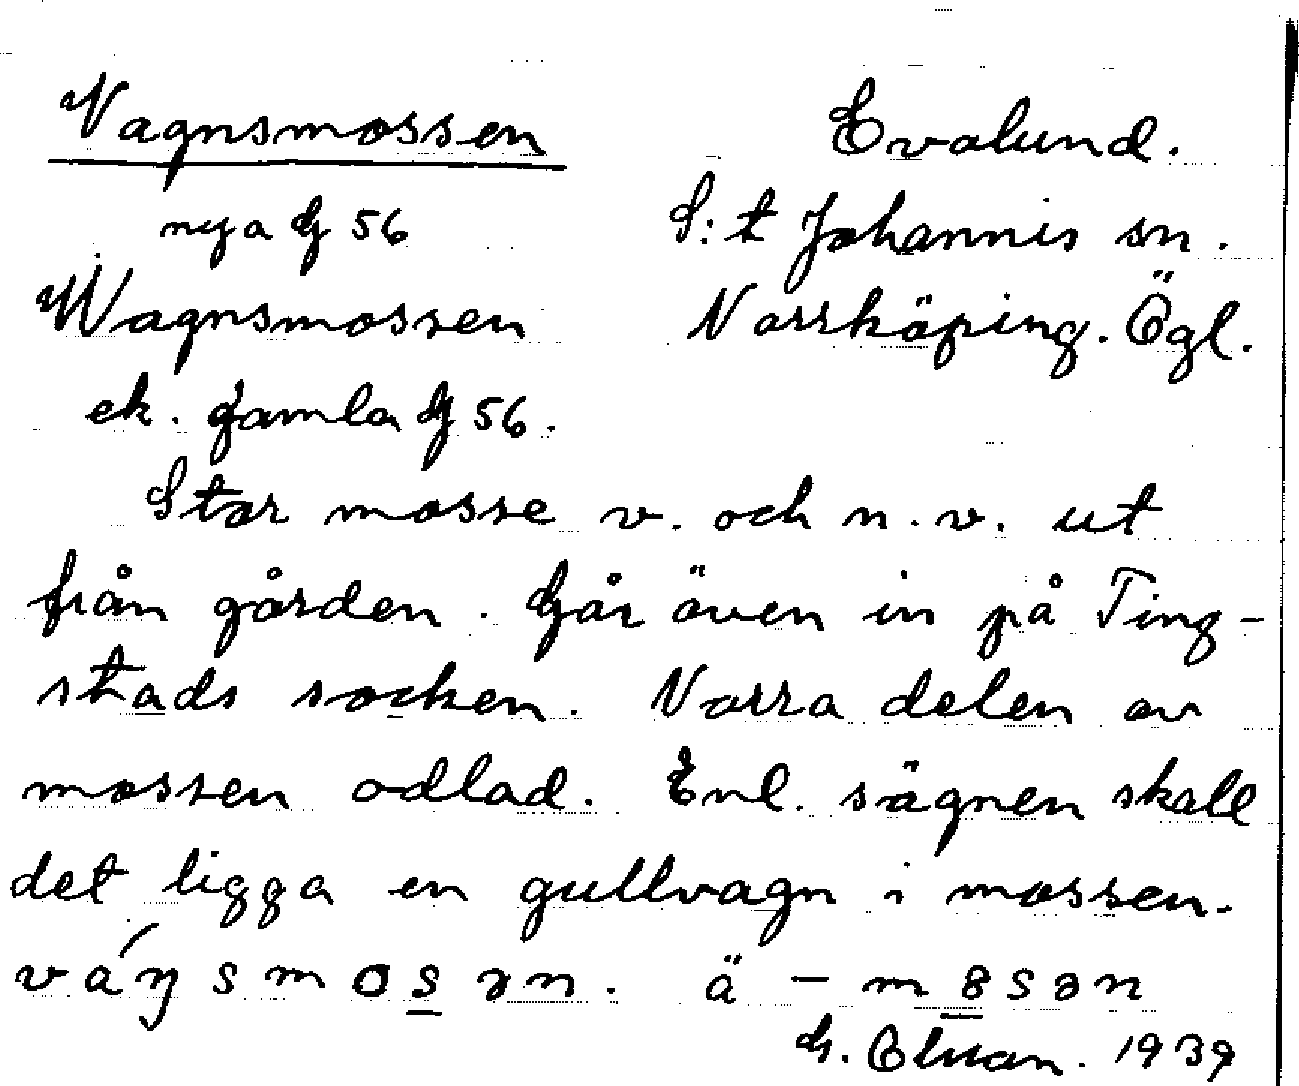 Vagnsmossen
nya G 56
Wagnsmossen
ek. gamla G 56.
Evalund.
S:t Johannis sn.
Norrköping. Ögl.
Stor mosse v. och n.v. ut
från gården. Går även in på Ting-
stads socken. Norra delen av
mossen odlad. Enl. sägnen skall
det ligga en gullvagn i mossen.
váŋsmosən. ä - m
G. 1939